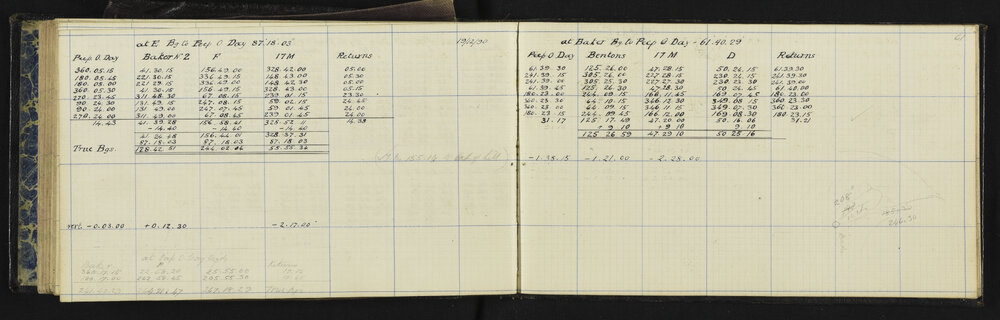 at E Bg to Peep O Day 87.18.03
19/12/30
Peep O Day Baker Nº2 F 17M Returns
360.05.15 41.30.15 156.49.00 328.42.00 05.00
180.05.45 221.30.15 336.49.15 148.43.00 05.30
180.05.00 221.29.15 336.49.00 148.42.30 05.00
360.05.30 41.30.15 156.49.15 328.43.00 05.15
270.23.45 311.48.30 67.08.15 239.01.15 23.30
90.24.30 131.49.15 247.08.15 59.02.15 24.45
90.24.00 131.49.00 247.07.45 59.01.45 24.00
270.24.00 311.49.00 67.08.45 239.01.45 24.00
14.43 41.39.28 156.58.41 328.52.11 14.38
-14.40 -14.40 -14.40
41.24.48 156.44.01 328.37.31
87.18.03 87.18.03 87.18.03
True Bgs. 128.42.51 244.02.04 55.55.34
vert -0.03.00 +0.12.30 -2.17.00
at Peep O Day
Returns
at Baker Bg to Peep O Day - 61.40.29
61
Peep O Day Bentons 17 M D Returns
61.39.30 125.26.00 47.28.15 50.24.15 61.39.30
241.39.15 305.26.00 227.28.15 230.24.15 241.39.30
241.39.00 305.25.30 227.27.30 230.23.30 241.39.00
61.39.45 125.26.30 47.28.30 50.24.45 61.40.00
180.23.00 244.09.15 166.11.45 169.07.45 180.23.00
360.23.30 64.10.15 346.12.30 349.08.15 360.23.30
360.23.00 64.09.15 346.11.15 349.07.30 360.23.00
180.23.15 244.09.45 166.12.00 169.08.30 180.23.15
31.17 125.17.49 47.20.00 50.16.06 31.21
+9 10 +9 10 9 10
125.26.59 47.29.10 50.25.16
-1.38.15 -1.21.00 -2.28.00
208
246.30